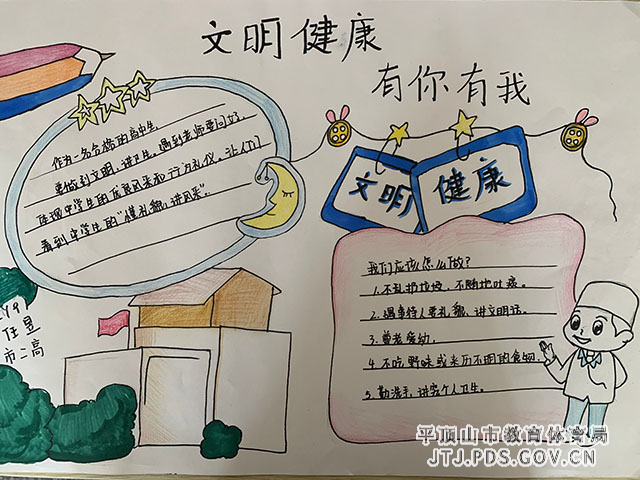 文明健康
有你有我
作为一名合格的高中生,
要做到文明、讲卫生。遇到老师要问好,
体现中学生的优良风采和行为礼仪。让人们
看到中学生的“懂礼貌,讲风采”。
文明
健康
我们应该怎么做?
1.不乱扔垃圾,不随地吐痰。
2.遇事待人要礼貌,讲文明话。
3.尊老爱幼。
4.不吃野味或来历不明的食物。
5.勤洗手,讲究个人卫生。
任昱
市二高
平顶山市教育体育局
JTJ.PDS.GOV.CN